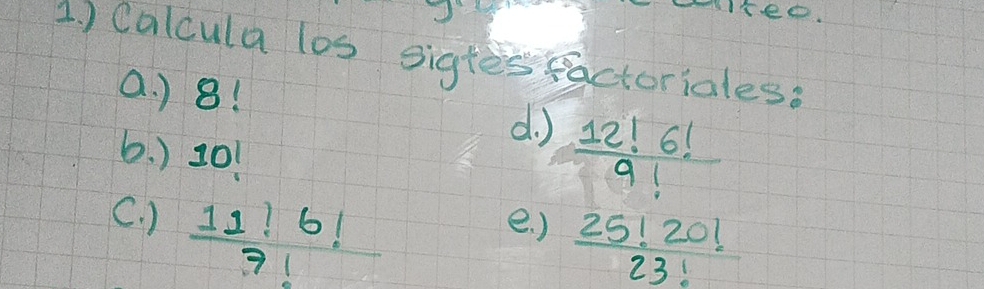 1.) Calcula los sigtes factoriales:
a.) 8!
b.) 10!
c.) 11! 6! / 7!
d.) 12! 6! / 9!
e.) 25! 20! / 23!